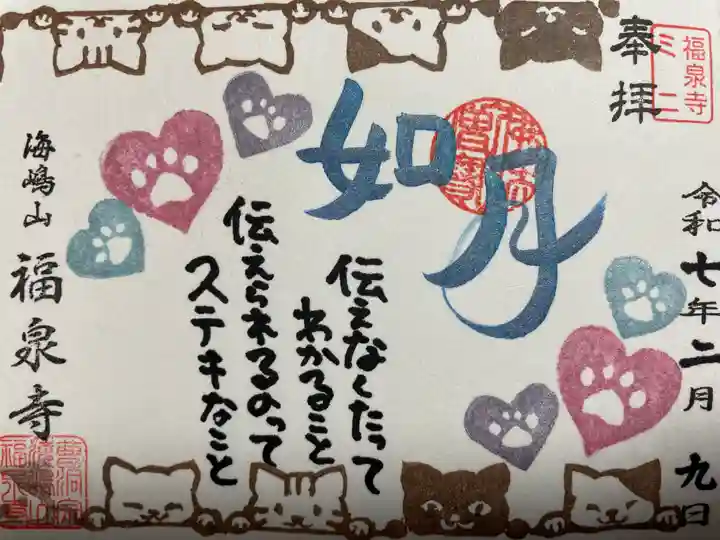 奉拝
福泉寺
三二
令和七年二月九日
如月
伝えなくたって
わかること
伝えられるのって
ステキなこと
海嶋山
福泉寺